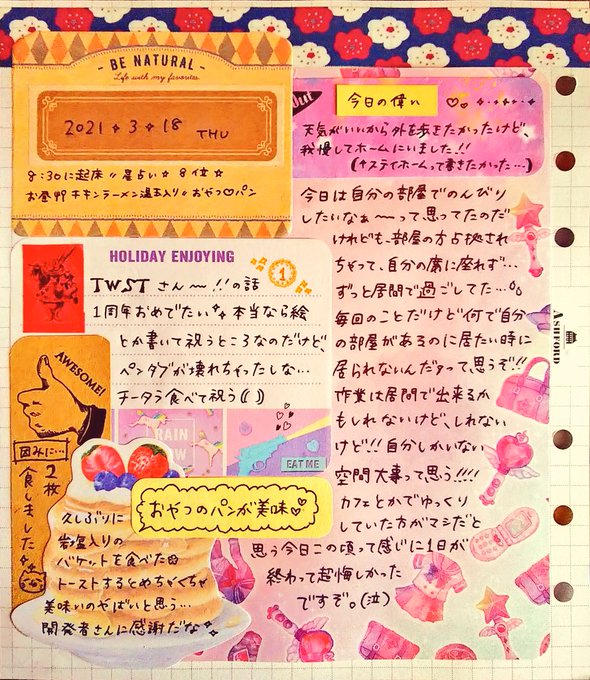 - BE NATURAL -
Life with my favorites.
2021✧3✧18 THU
8:30に起床〃星占い☆8位☆
お昼チキンラーメン温玉入り。おやつ♡パン
今日の偉い
天気がいいから外を歩きたかったけど、
我慢してホームにいました!!
(↑ステイホームって書きたかった…)
HOLIDAY ENJOYING
1
TWSTさん〜!!の話
1周年おめでたい 本当なら絵
とか書いて祝うところなのだけど、
ペンタブが壊れちゃったしな…
チータラ食べて祝う(( ))
AWESOME!
因みに…
2枚食しました
RAIN
OW
EAT ME
おやつのパンが美味♡
久しぶりに
岩塩入りの
バケットを食べた
トーストするとめちゃくちゃ
美味いのやばいと思う…
開発者さんに感謝だな
今日は自分の部屋でのんびり
したいなぁ〜って思ってたのだ
けれども、部屋の方占拠され
ちゃって、自分の席に座れず…
ずっと居間で過ごしてた…
毎回のことだけど何で自分
の部屋があるのに居たい時に
居られないんだyって、思うぞ!!
作業は居間で出来るか
もしれないけど、しれない
けど!!自分しかいない
空間大事って思う!!!!
カフェとかでゆっくり
していた方がマシだと
思う今日この頃って感じに1日が
終わって超悔しかった
ですぞ。(泣)
ASHFORD